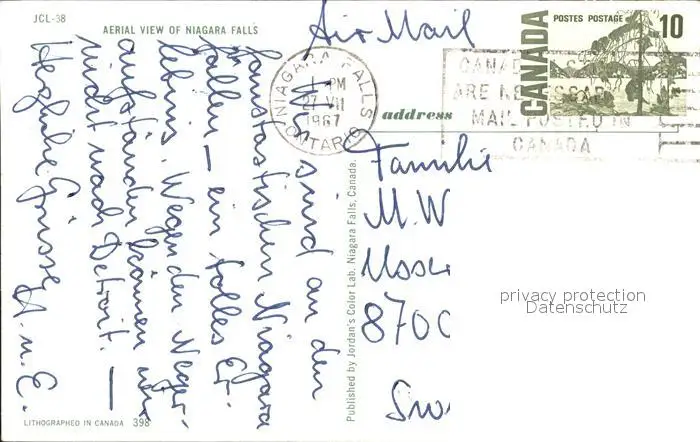 JCL-38
AERIAL VIEW OF NIAGARA FALLS
Air Mail
CANADA
POSTES POSTAGE
10
NIAGARA FALLS
1 PM
27 VII
1967
ONTARIO
CANAD
ARE NECESSAR
MAIL POSTED IN
CANADA
address
Wir sind an den
fantastischen Niagara
fällen – ein tolles Er-
lebnis. Wegen den Neger-
aufständen können wir
nicht nach Detroit. —
Herzliche Grüsse
A. u. E.
Published by Jordan's Color Lab. Niagara Falls, Canada.
Familie
M. W
870
privacy protection
Datenschutz
LITHOGRAPHED IN CANADA 398